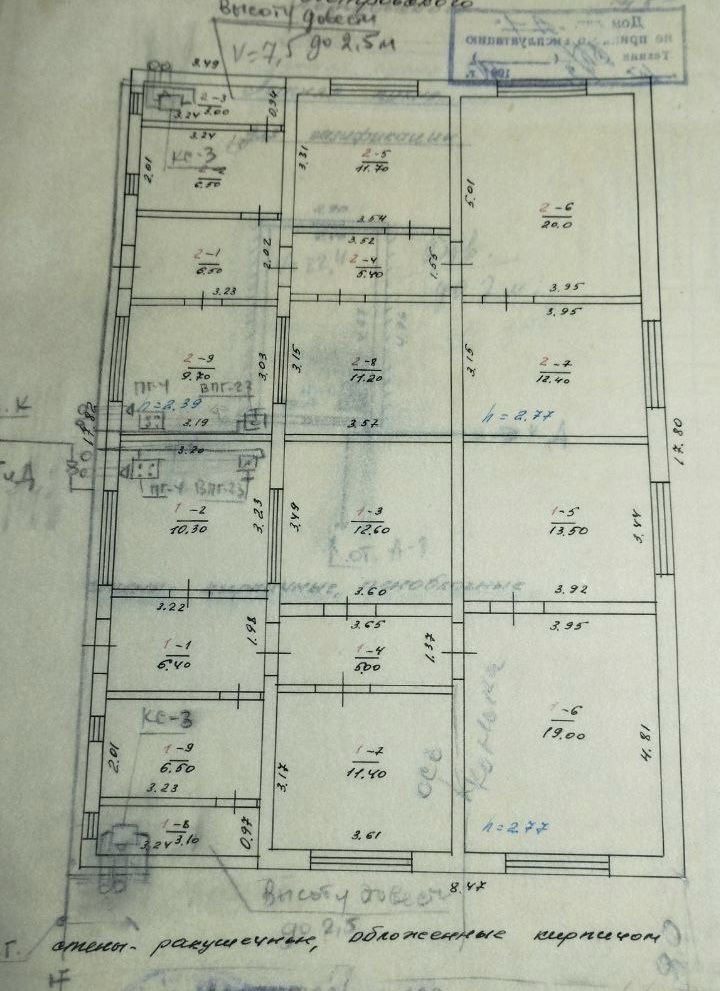 Высоту довести
до 2,5м
V=7,5
8.49
2-3
3.00
3.24
0.94
3.24
КС-3
2.01
6.50
2-5
11.70
3.31
3.54
5.01
2-6
20.0
3.95
2-1
6.50
2.02
3.23
3.52
2-4
5.40
1.55
3.95
2-9
9.70
3.03
3.15
2-8
11.20
3.57
3.15
2-7
12.40
ПГ-4 ВПГ-23
h=2.39
3.19
h=2.77
17.82
17.80
3.20
ПГ-4 ВПГ-23
1-2
10,30
3.23
3.49
1-3
12.60
3.60
1-5
13,50
3.44
3.92
3.22
1-1
6.40
1.98
3.65
1-4
5.00
1.37
3.95
1-6
19.00
4.81
КС-3
1-9
6.50
2.01
3.23
3.17
1-7
11.40
3.61
h=2.77
1-8
3.10
3.24
0.97
8.47
Высоту довести
до 2.5
стены- ракушечные, обложенные кирпичом